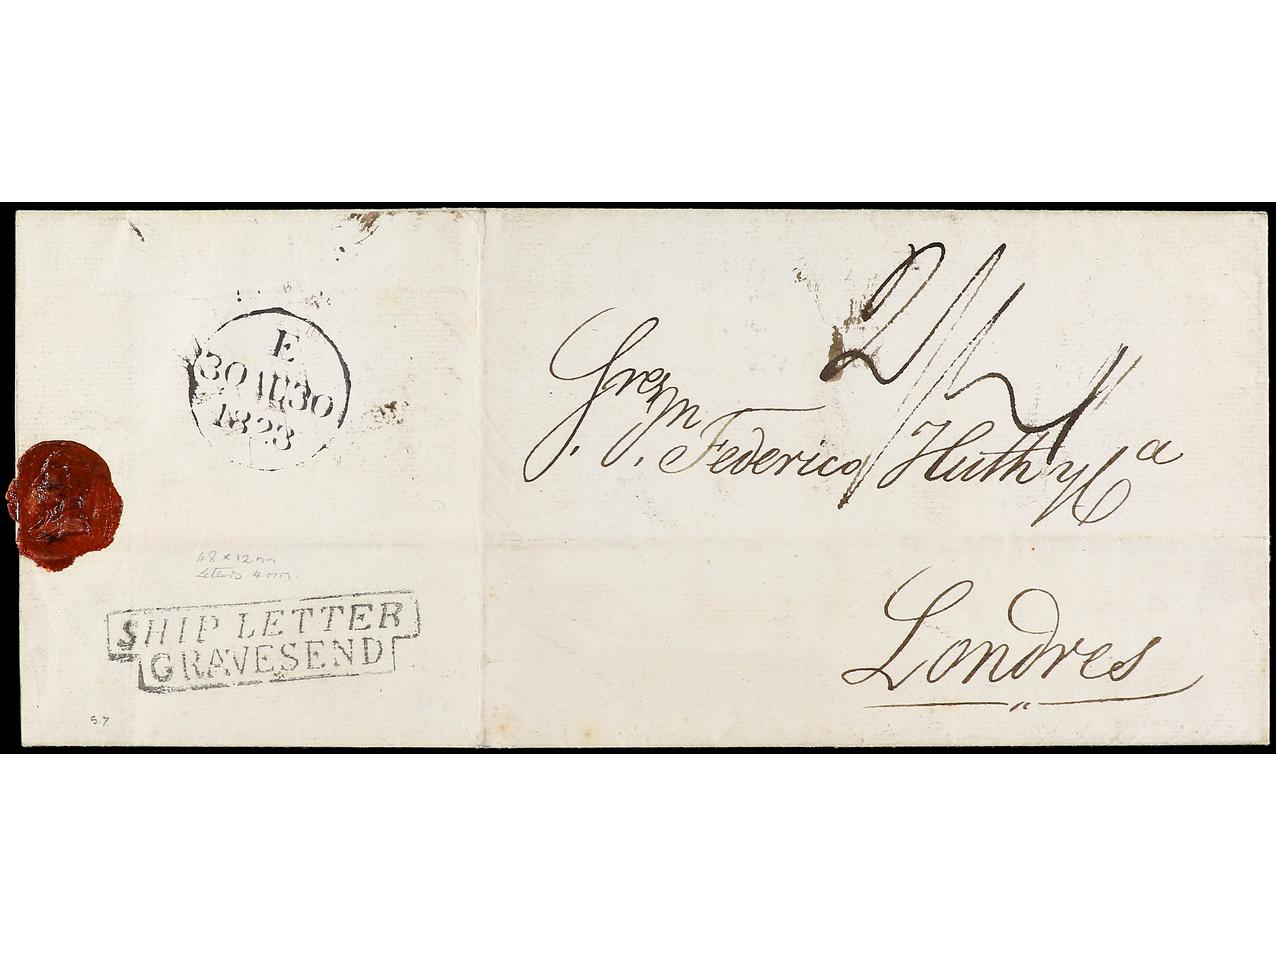 E
30 AU 30
1823
48 x 12 mm
Letters 4 mm.
SHIP LETTER
GRAVESEND
S.7
Federico Huth y Ca
Londres